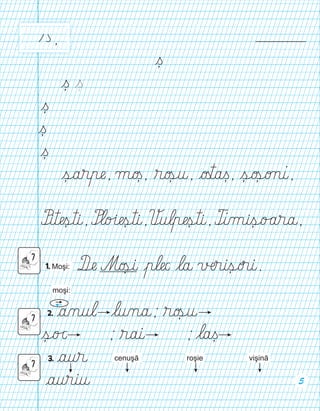 ș
ș ș
ș
ș
ș
șarpe, moș, roșu, otaș, șoșoni,
Ploiești, Vulpești, Timișoara,
1. Moși: De Moși plec la verișori.
moși:
2. anul→luna; roșu→
șoc→ ; rai→ ; laș→
3. aur cenușă roșie vișină
auriu
5